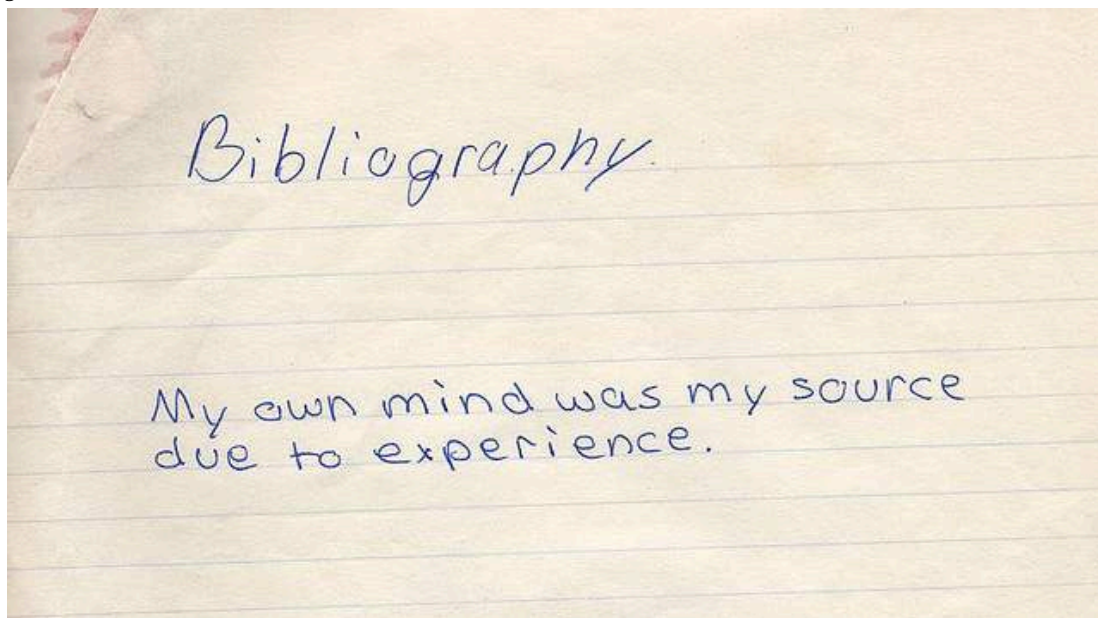 Bibliography
My own mind was my source
due to experience.